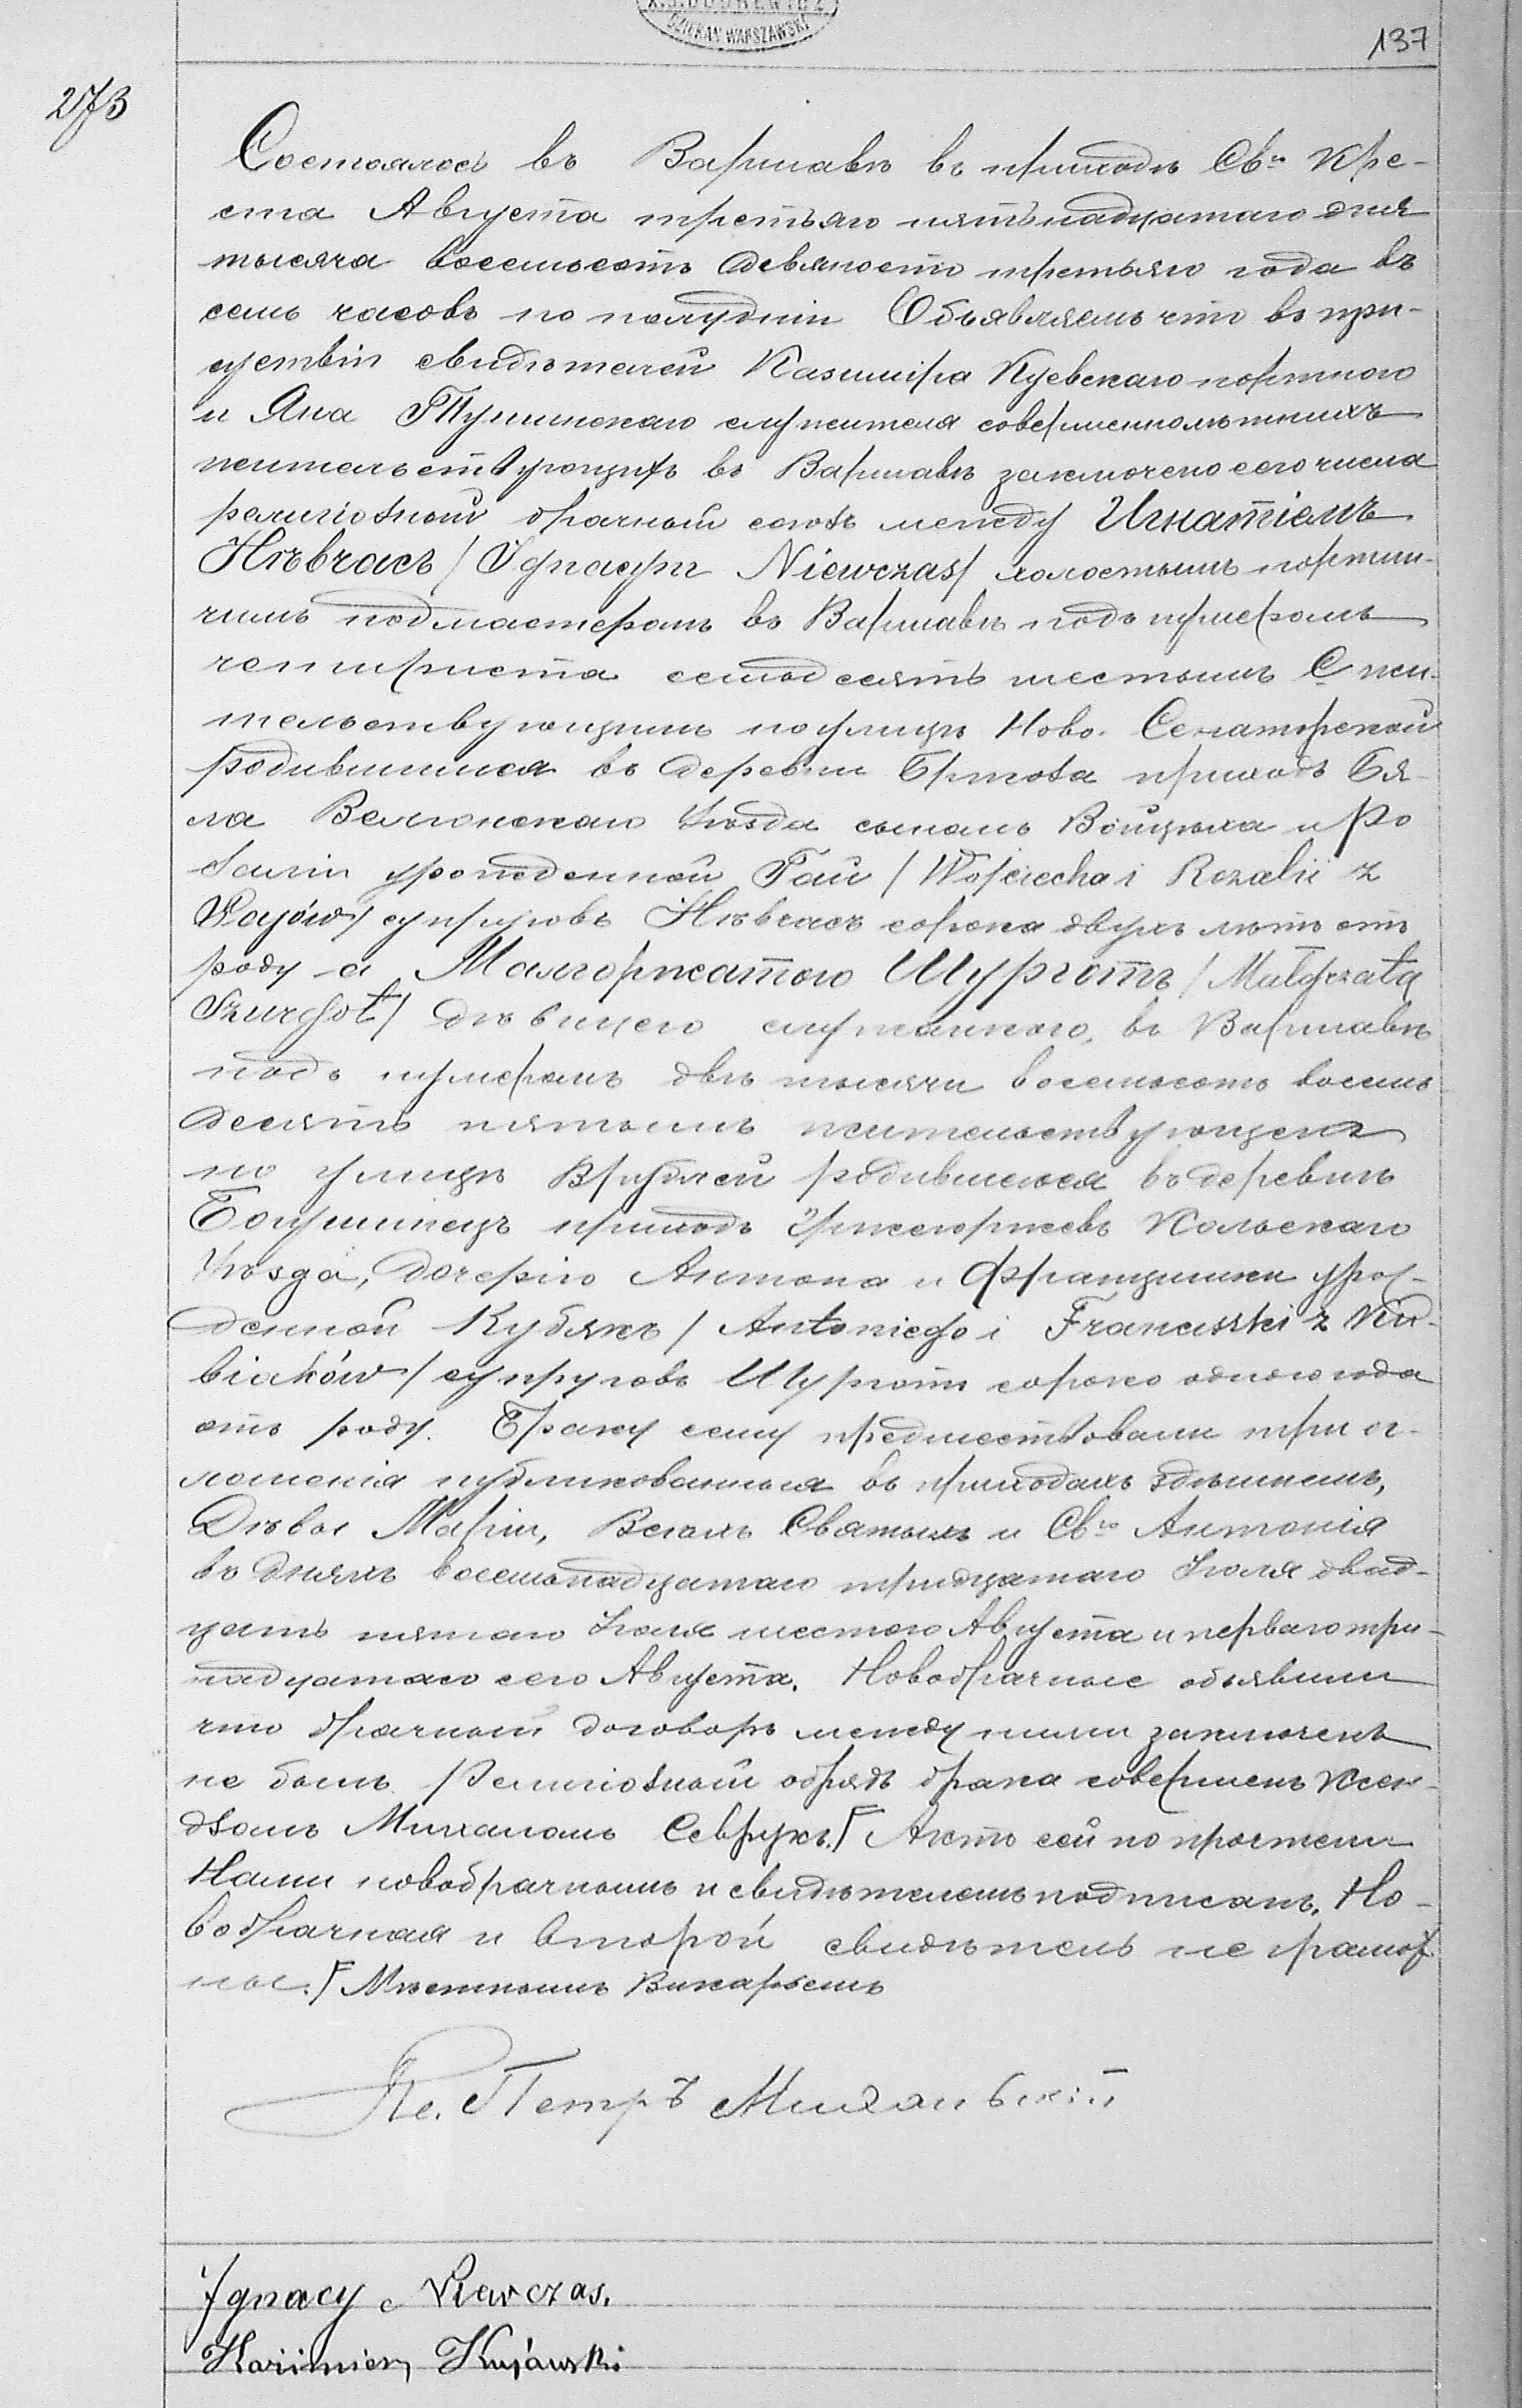 X.S.DUDREWICZ
DZIEKAN WARSZAWSKI
137
273
Состоялось въ Варшавѣ въ приходѣ Св. Кре-
ста Августа третьяго пятьнадцатаго дня
тысяча восемьсотъ девяносто третьяго года въ
семь часовъ по полудни Объявляемъ что въ при-
суствіи свидѣтелей Казиміра Куевскаго портного
и Яна служителя совершеннолѣтнихъ
жительствующихъ въ Варшавѣ заключено сего числа
религіозный брачный союзъ между Игнатіемъ
Нѣвчасъ /Ignacym Niewczas/ холостымъ портни-
чимъ подмастеромъ въ Варшавѣ подъ нумеромъ
четыриста семьдесятъ шестымъ С жи-
тельствующимъ по улицѣ Ново-Сенаторской
родившимся въ деревни приходѣ Бя-
ла Велюнскаго Уѣзда сыномъ Войцѣха и Ро
залiи урожденной Рай /Wojciecha i Rozalii z
Rajów/ супруговъ Нѣвчасъ сорока двухъ лѣтъ отъ
роду а Малгоржатою Шурготъ /Małgorzatą
Szurgot/ дѣвицею служанкою, въ Варшавѣ
подъ нумеромъ двѣ тысячи восемьсотъ восемь
десятъ пятымъ жительствующею
по улицѣ родившеюся въ деревнѣ
приходѣ Кольскаго
Уѣзда, дочерію Антона и Францишки урож-
денной Кубякъ /Antoniego i Franciszki z Ku-
biaków/ супруговъ Шурготъ сорокo одного года
отъ роду. Браку сему предшествовали три ог-
лошенія публикованныя въ приходахъ здѣшнемъ,
Дѣвы Маріи, Всѣхъ Святыхъ и Св. Антонія
въ дняхъ восемьнадцатаго тридцатаго Іюля двад-
цать пятаго Іюля шестого Августа и перваго три-
надцатаго сего Августа. Новобрачные объявили
что брачный договоръ между ними заключенъ
не былъ. Религіозный обрядъ брака совершенъ Ксен-
дзомъ Михаломъ Севрукъ./ Актъ сей по прочтени
Нами новобрачнымъ и свидѣтелемъ подписанъ. Но-
вобрачная и второй свидѣтель не грамот
ные./ Мѣстнымъ Викарьемъ
Кс. Петръ
Ignacy Niewczas.
Kazimierz Kujawski